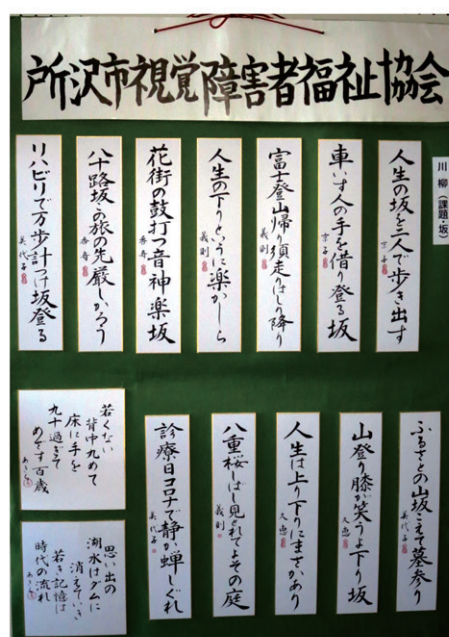 所沢市視覚障害者福祉協会
川柳（課題・坂）
人生の坂を二人で歩き出す
京子
車いす人の手を借り登る坂
京子
富士登山帰り須走りはしり降り
義則
人生の下りというに楽かしら
義則
花街の鼓打つ音神楽坂
秀寿
八十路坂この旅の先厳しかろう
秀寿
リハビリで万歩計つけ坂登る
美代子
ふるさとの山坂こえて墓参り
美代子
山登り膝が笑うよ下り坂
久恵
人生は上り下りにまさかあり
久恵
八重桜しばし見とれてよその庭
義則
診療日コロナで静か蝉しぐれ
美代子
若くない
背中丸めて
床に手を
九十過ぎて
めざす百歳
思い出の
湖水はダムに
消えていき
若き記憶は
時代の流れ